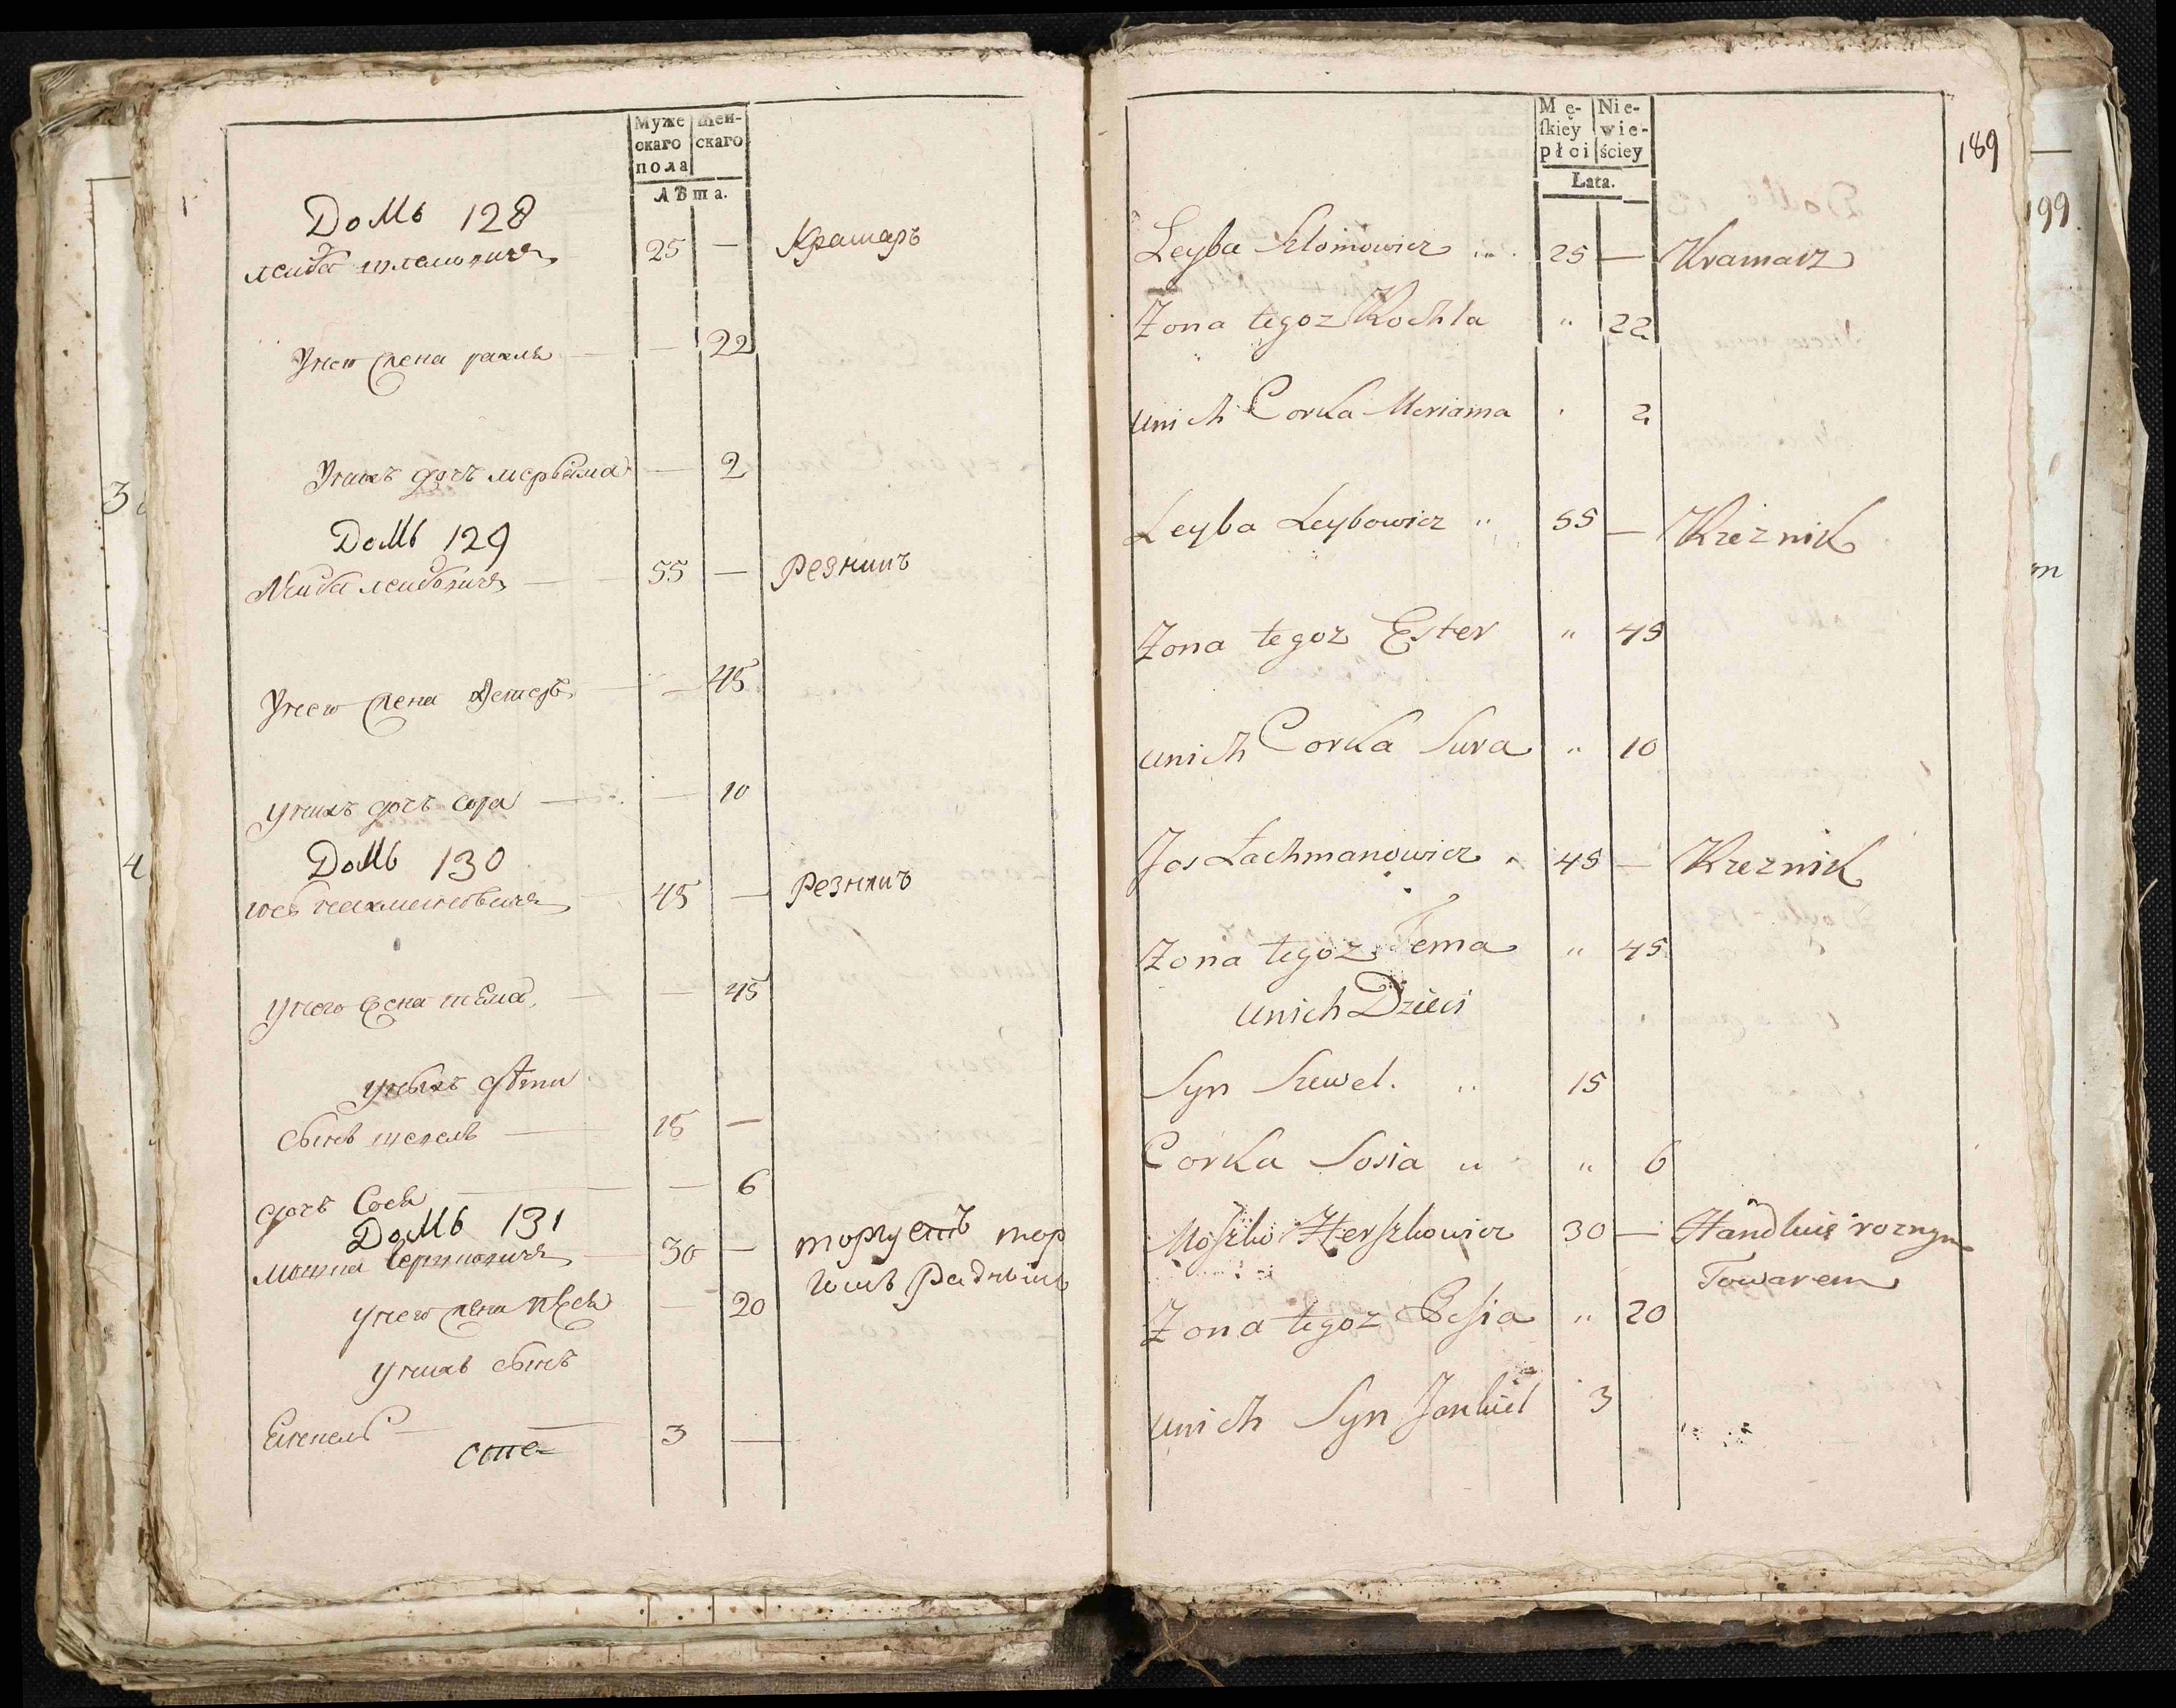 Муже
скаго
пола
Жен-
скаго
ЛѢта.
Домъ 128
Лейба шлемовичъ 25 — Крамаръ
Унего жена рахля — — 22
Унихъ дочъ мерьяма — 2
Домъ 129
Лейба лейбовичъ — 55 — Резникъ
Унего жена Эстеръ — — 45
Унихъ дочъ сора — — 10
Домъ 130
45 — Резникъ
Унего жена тема — — 45
Унихъ дѣти
сынъ шевель — 15 —
дочъ Сося — — 6
Домъ 131
Мошка Гершковичъ — 30 — торгуетъ тор
Унего жена песя — 20
Унихъ сынъ
Енкель — 3 —
Mę-
ſkiey
płci
Nie-
wie-
ściey
Łata.
189
199
Leyba Szlomowicz 25 — Kramarz
Zona tegoz Rochla " 22
unich Corka Meriama 2
Leyba Leybowicz " 55 — Rzeznik
Zona tegoz Ester " 45
unich Corka Sura " 10
Jos Łachmanowicz 45 — Rzeznik
Zona tegoz Tema " 45
unich Dzieci
Syn Szewel. " 15
Corka Sosia " " 6
Moszko Herszkowicz 30 — Handluie roznym
Towarem
Zona tegoz Pesia " 20
unich Syn Jankiel 3